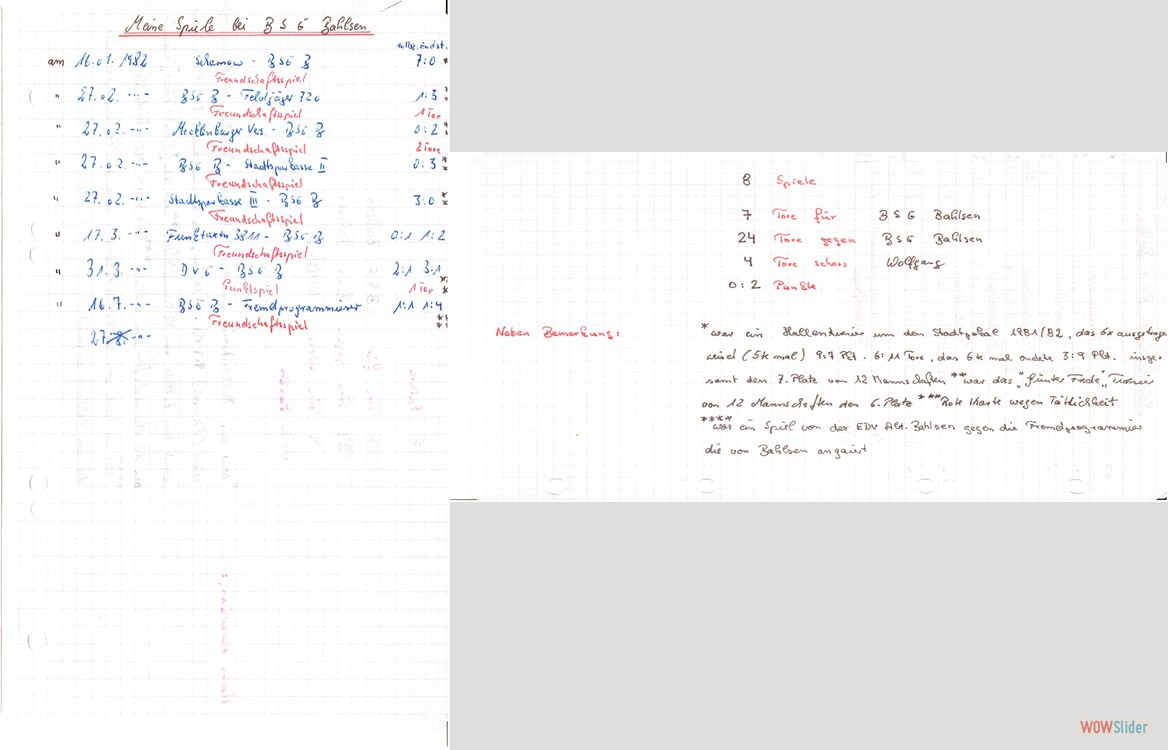 Meine Spiele bei BSG Bahlsen
Halbz. Endst.
am 16.01.1982 Scharnow - BSG B 7:0 *
Freundschaftsspiel
" 27.02. -"- BSG B - Feldjäger 720 1:3 *
Freundschaftsspiel 1 Tor
" 27.02. -"- Mecklenburger Vers. - BSG B 0:2 *
Freundschaftsspiel 2 Tore
" 27.02. -"- BSG B - Stadtsparkasse II 0:3 *
Freundschaftsspiel
" 27.02. -"- Stadtsparkasse III - BSG B 3:0 *
Freundschaftsspiel
" 17.3. -"- Funktaxen 3811 - BSG B 0:1 1:2
Freundschaftsspiel
" 31.3. -"- DVG - BSG B 2:1 3:1
Punktspiel 1 Tor
" 16.7. -"- BSG B - Fremdprogrammierer 1:1 1:4
Freundschaftsspiel
27. -"-
8 Spiele
7 Tore für BSG Bahlsen
24 Tore gegen BSG Bahlsen
4 Tore schoss Wolfgang
0:2 Punkte
Neben Bemerkung:
* war ein Hallenturnier um den Stadtpokal 1981/82, das 6x ausgetrage
wird (5te mal) 9:7 Pkt. 6:11 Tore, das 6te mal endete 3:9 Pkt. insge-
samt den 7. Platz von 12 Mannschaften ** war das "Günter Frede" Turnier
von 12 Mannschaften den 6. Platz *** Rote Karte wegen Tätlichkeit
**** war ein Spiel von der EDV Abt. Bahlsen gegen die Fremdprogrammier
die von Bahlsen
WOWSlider